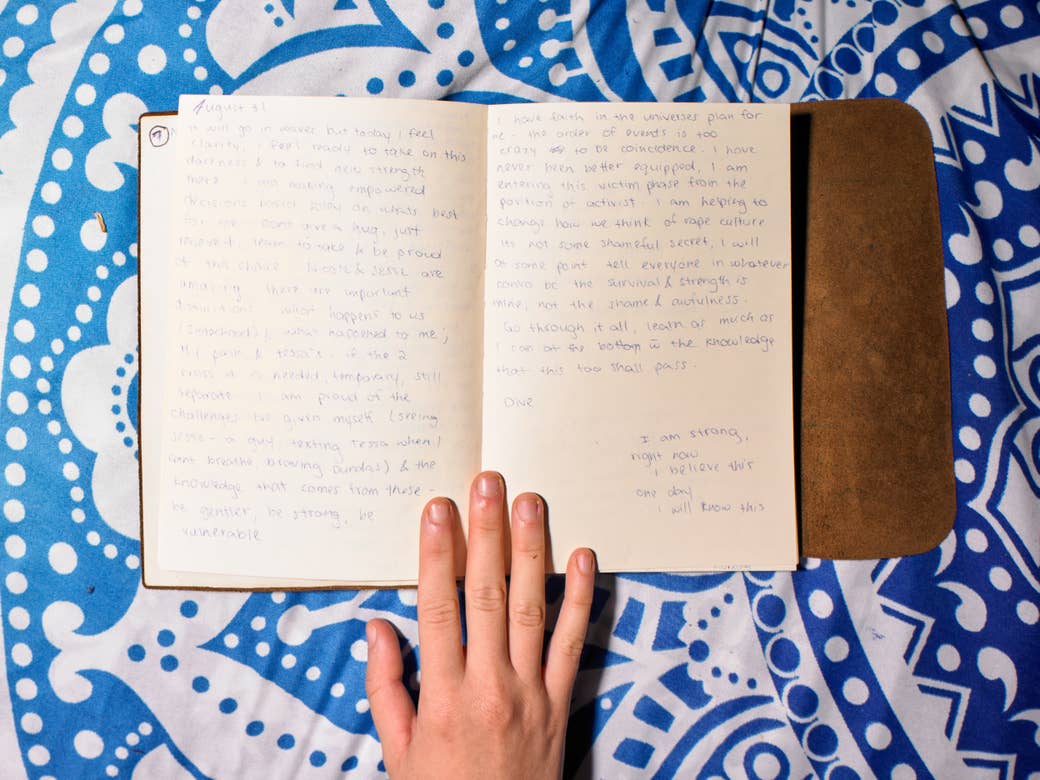 August 31
it will go in waves but today i feel
clarity, i feel ready to take on this
darkness & to find new strength
there. i am making empowered
decisions based soley on whats best
for me. dont give a hug, just
receive it. learn to take & be proud
of this choice. & Jesse are
amazing. there are important
distinctions. what happens to us
what happened to me;
My pain & tessa's. if the 2
cross it is needed, temporary, still
separate. I am proud of the
challenges ive given myself (seeing
Jesse - a guy, texting Tessa when I
cant breathe, braving dundas) & the
knowledge that comes from these -
be gentler, be strong, be
vulnerable
I have faith in the universes plan for
me - the order of events is too
crazy to be coincidence. I have
never been better equipped, I am
entering this victim phase from the
position of activist. I am helping to
change how we think of rape culture
its not some shameful secret, I will
at some point tell everyone in whatever
convo bc the survival & strength is
mine, not the shame & awfulness.
Go through it all, learn as much as
I can at the bottom w the knowledge
that this too shall pass.
Dive
I am strong,
right now
i believe this
one day
i will know this